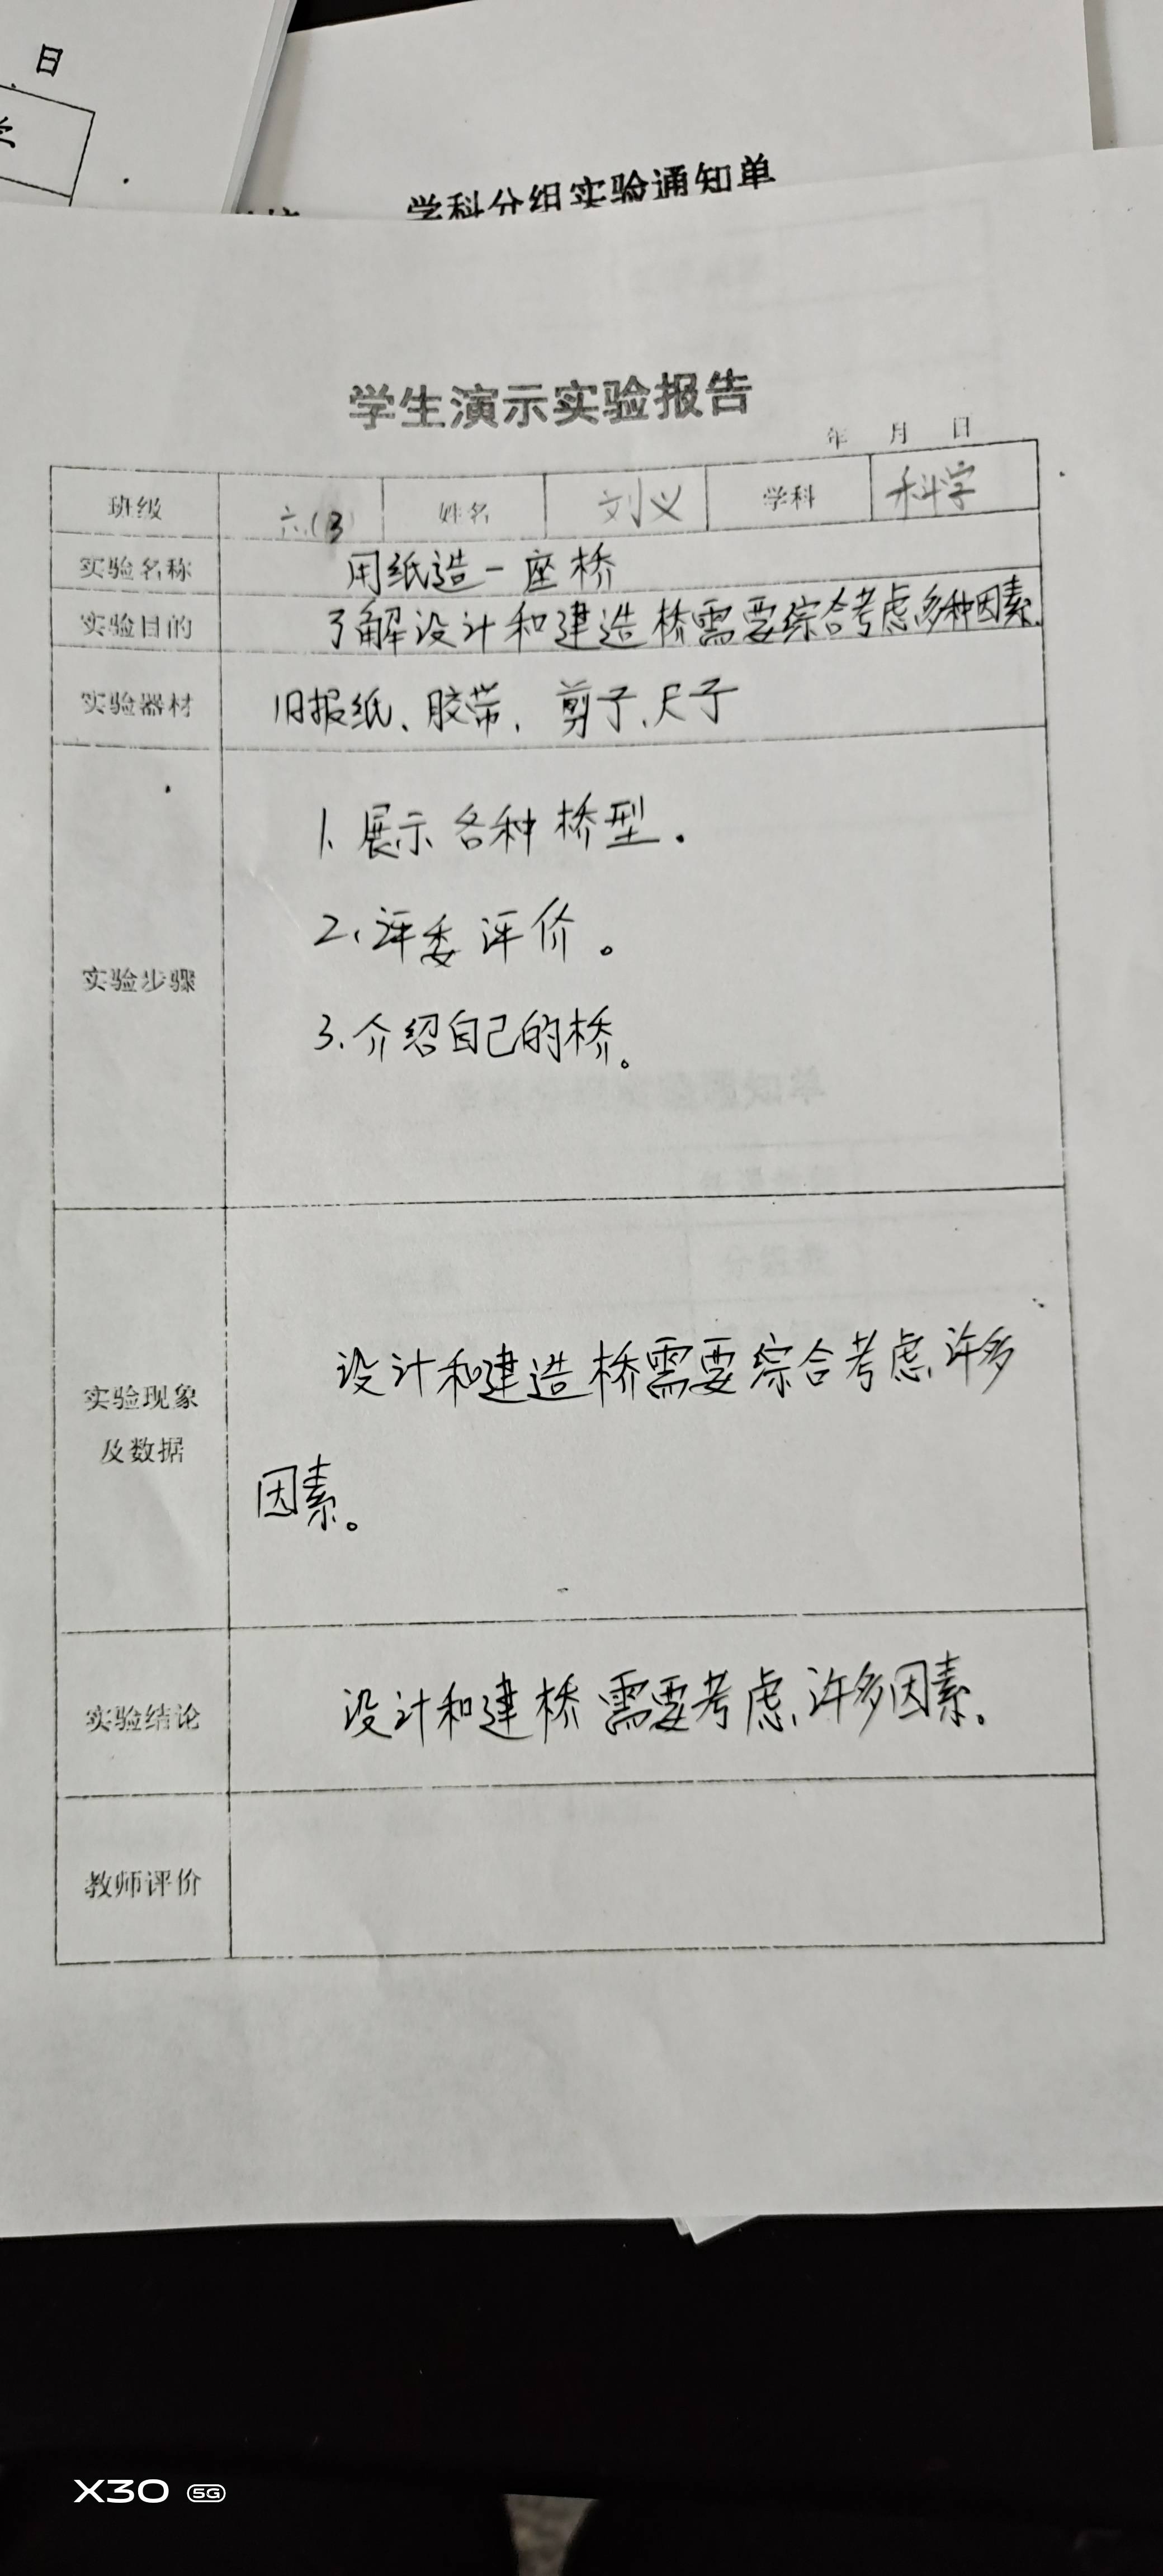 日
学科分组实验通知单
学生演示实验报告
年 月 日
班级 六.(3) 姓名 刘义 学科 科学
实验名称 用纸造一座桥
实验目的 了解设计和建造桥需要综合考虑多种因素.
实验器材 旧报纸、胶带、剪子、尺子
1、展示各种桥型.
2、评委评价。
实验步骤
3、介绍自己的桥。
设计和建造桥需要综合考虑许多
实验现象
及数据
因素。
实验结论 设计和建桥需要考虑许多因素.
教师评价
X30 5G